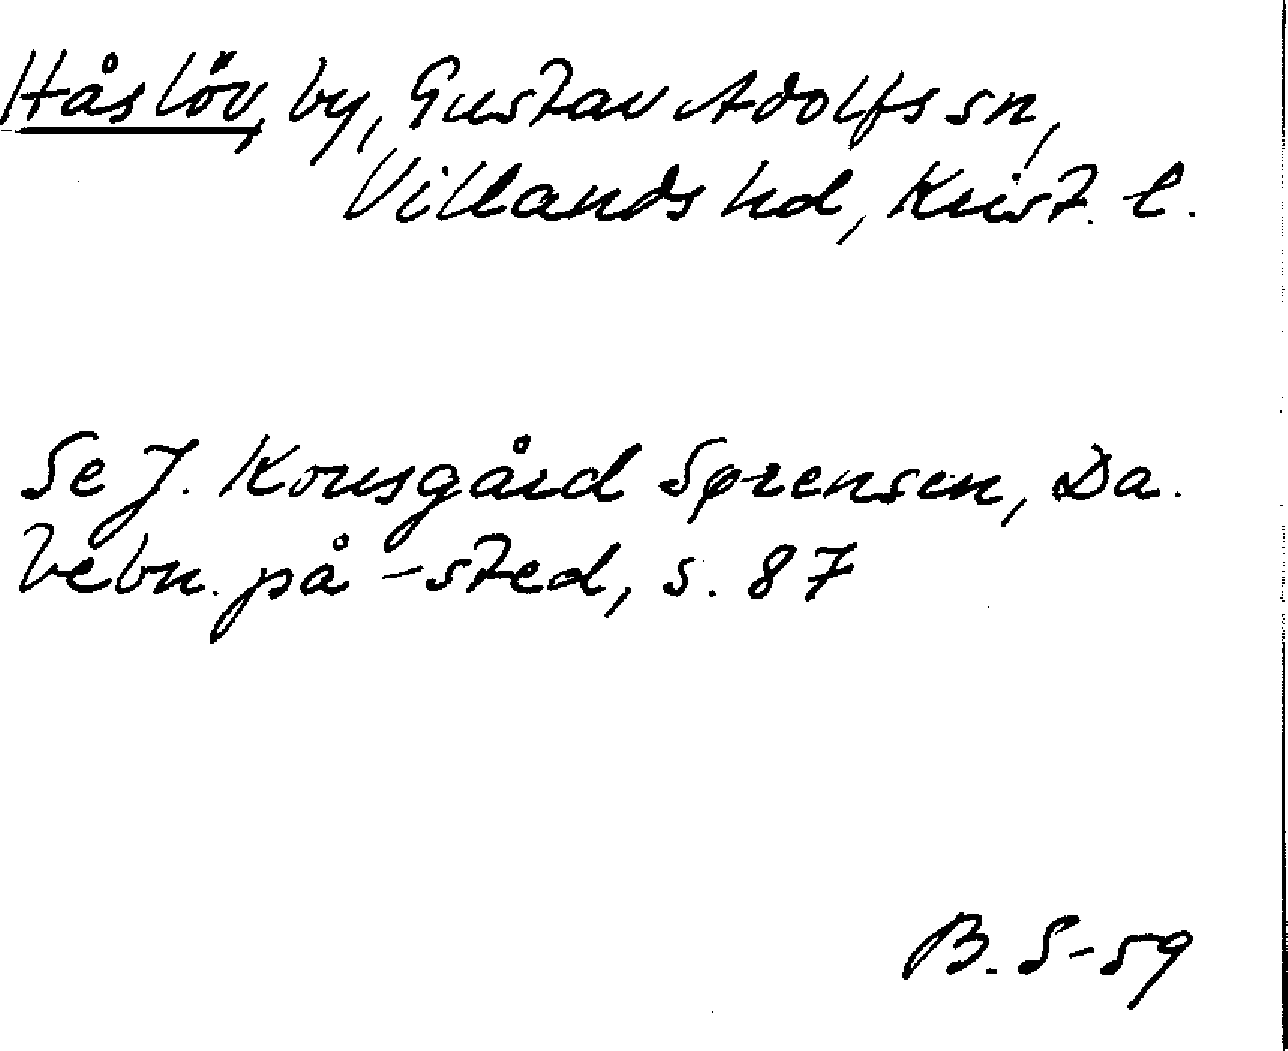 Håslöv, by, Gustav Adolfs sn,
Villands hd, Krist. l.
Se J. Kousgård Sørensen, Da.
bebn. på -sted, s. 87
B. S-59